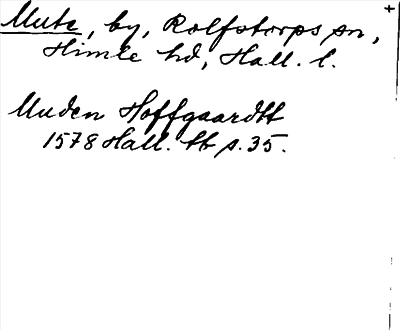 Muta, by, Rolfstorps sn,
Himle hd, Hall. l.
Muden Hoffgaardtt
1578 Hall. tb s. 35.